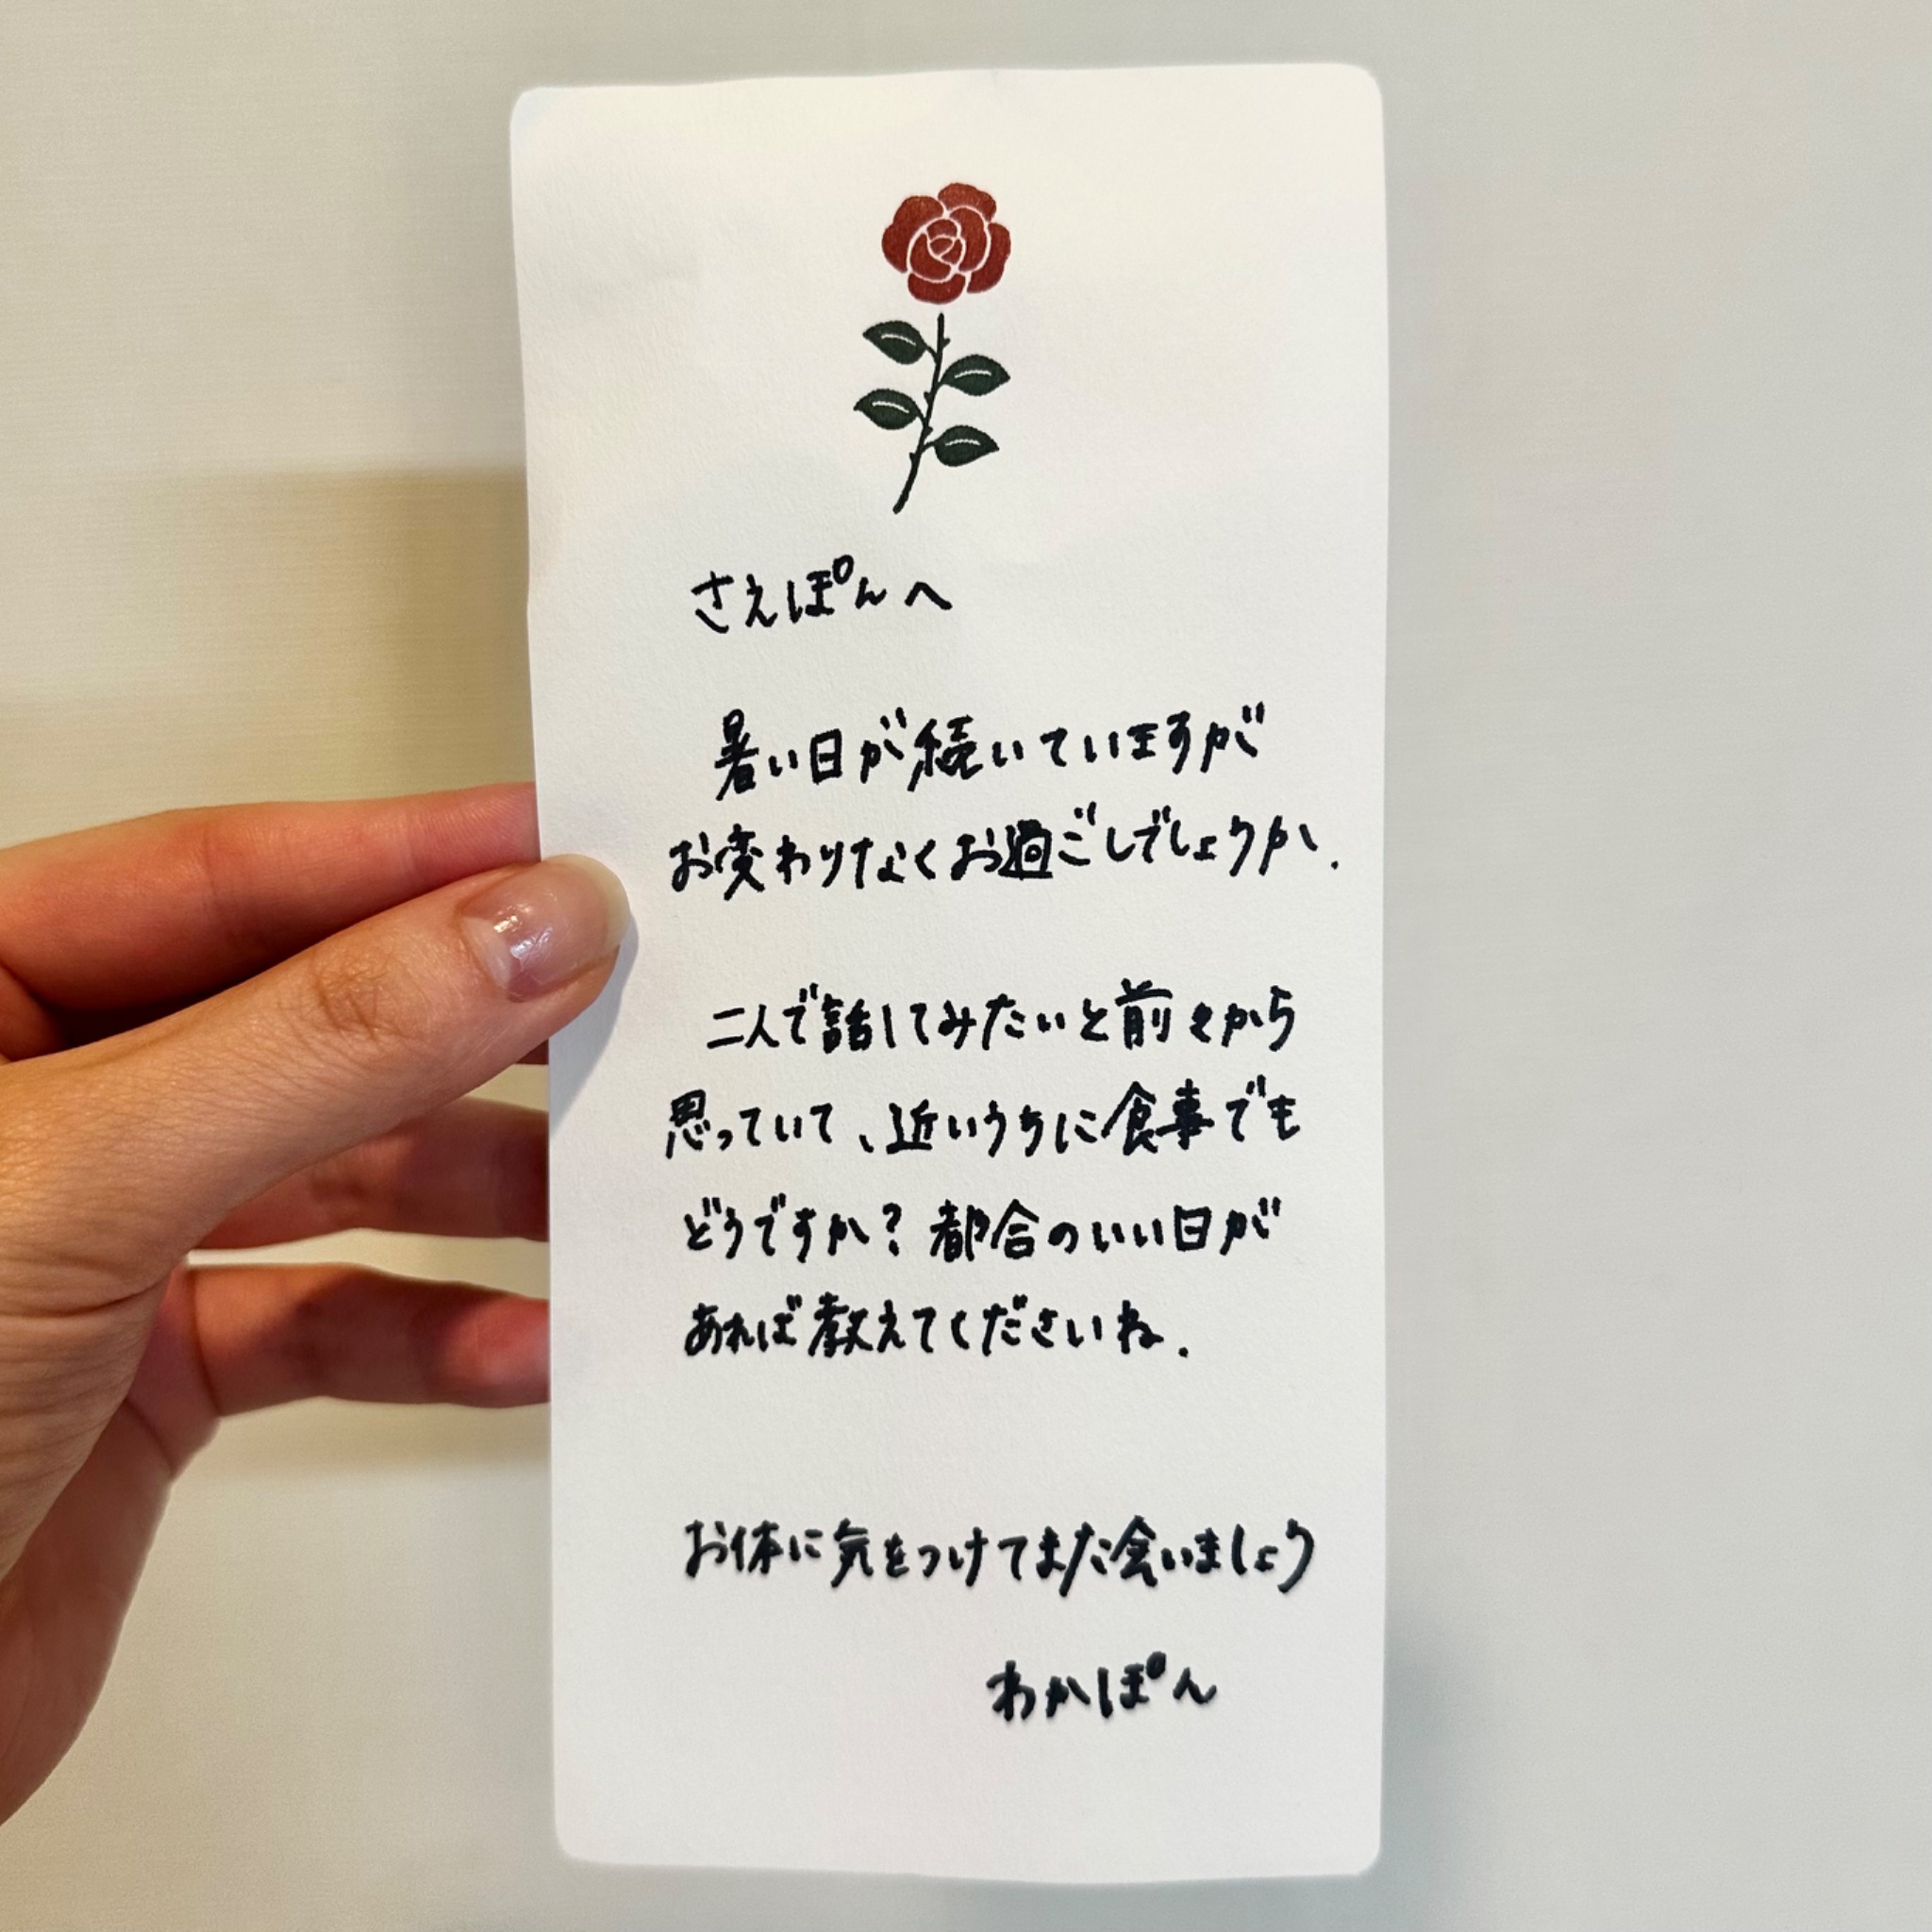 さえぽんへ
暑い日が続いていますが
お変わりなくお過ごしでしょうか.
二人で話してみたいと前々から
思っていて、近いうちに食事でも
どうですか？都合のいい日が
あれば教えてくださいね.
お体に気をつけてまた会いましょう
わかぽん